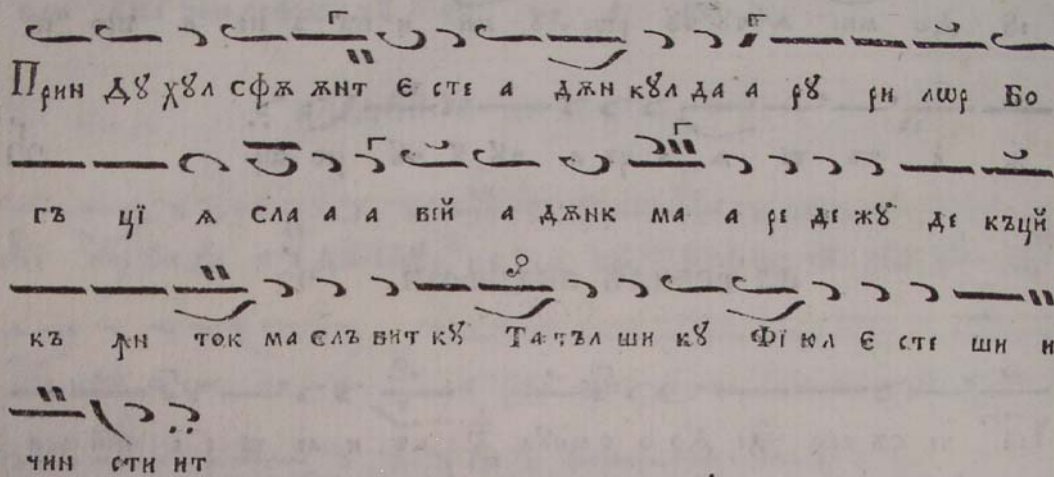 Прин Дꙋ хꙋл сфѫ ѫнт Є сте а дѫн кꙋл да а рꙋ ри лѡр Бо
гъ цї ѧ сла а а вей а дѫнк ма а ре де жꙋ де къцй
къ ꙟн ток ма єлъ вит кꙋ Та тъл ши кꙋ Фї юл Є сте ши и
чин сти ит